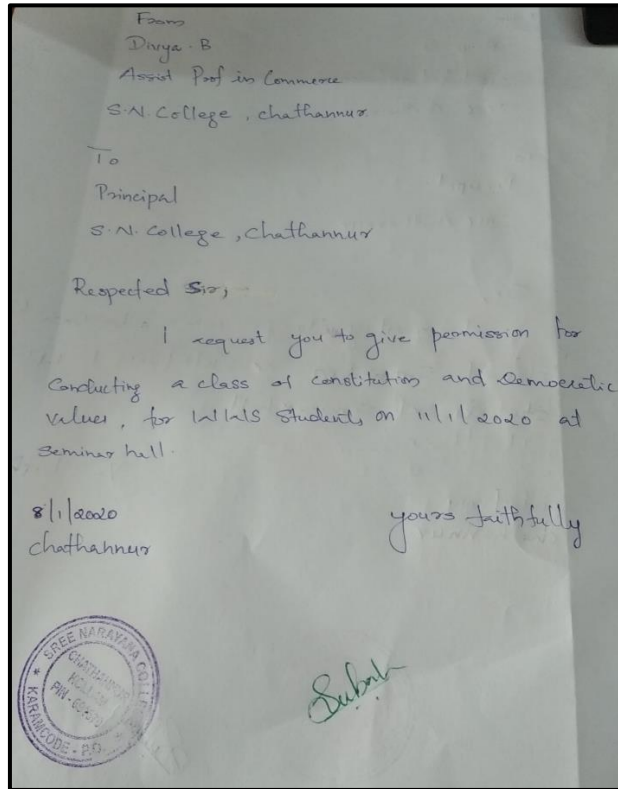 From
Divya. B
Assist Prof in Commerce
S.N. College, chathannur
To
Principal
S.N. College, Chathannur
Respected Sir,
I request you to give permission for
Conducting a class of constitution and Democratic
values, for WWS Students on 11/1/2020 at
Seminar hall.
8/1/2020
yours faithfully
chathannur
SREE NARAYANA COLLEGE
CHATHANNOOR
KOLLAM
KARAMCODE - P.O.